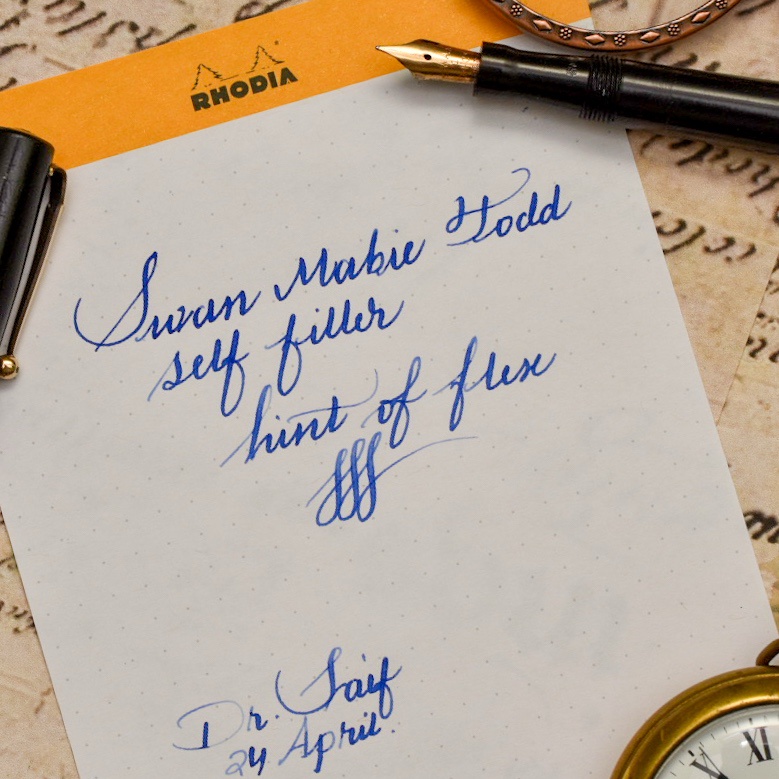 RHODIA
Swan Mabie Todd
self filler
hint of flex
Dr. Saif
24 April.
XI